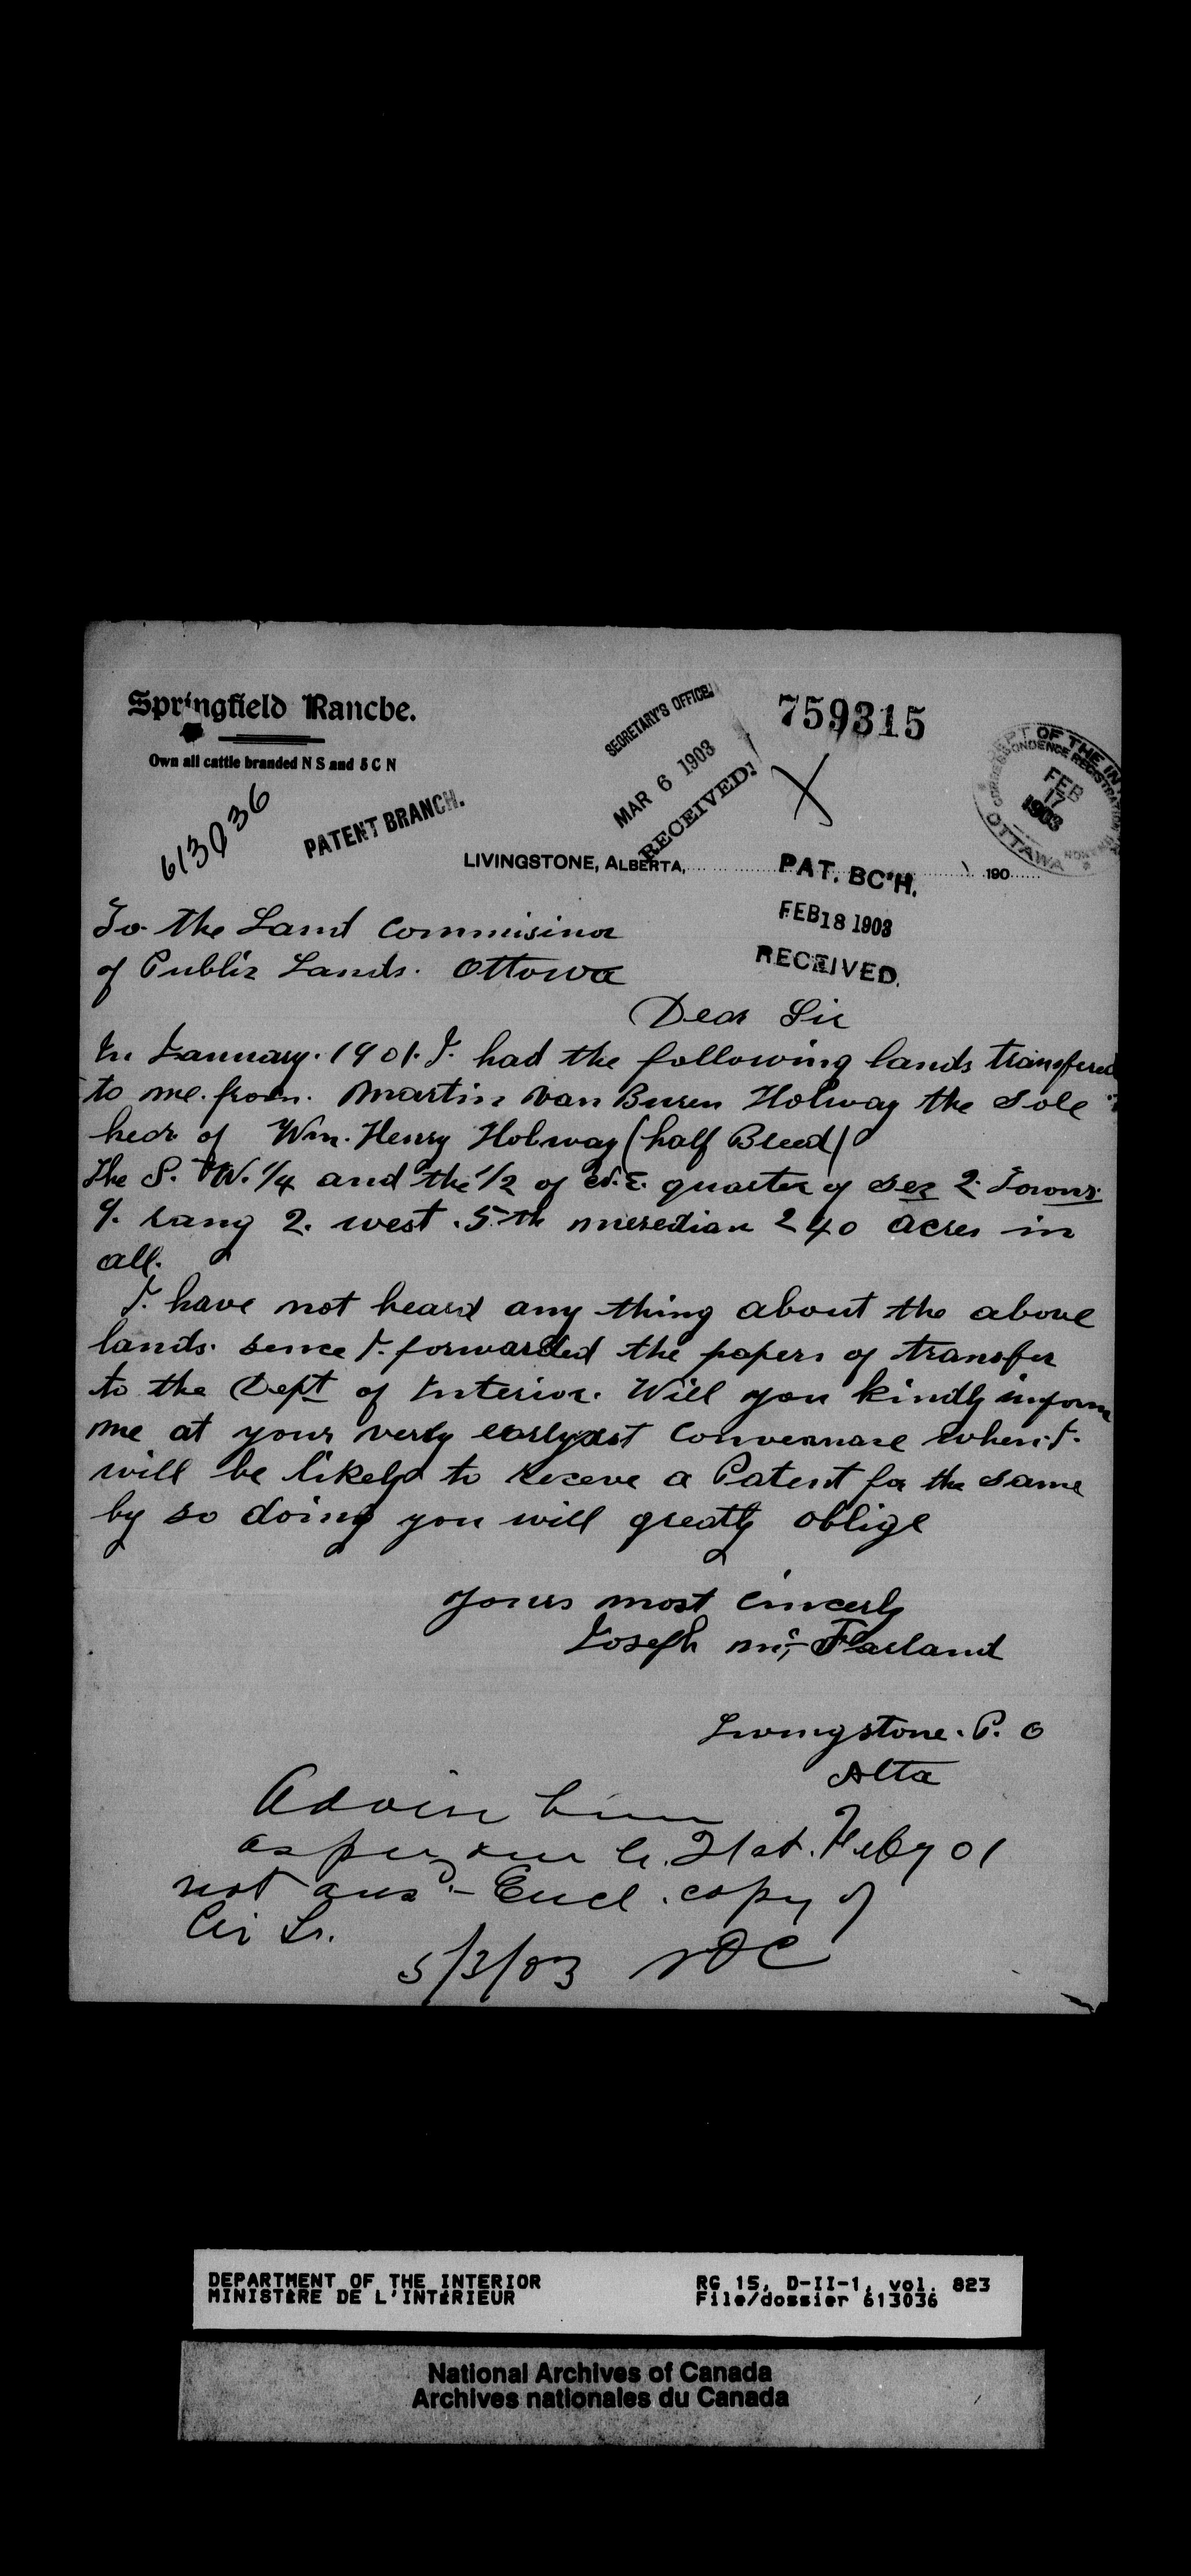 Springfield Ranche.
Own all cattle branded N S and 5 C N
613036
PATENT BRANCH.
SECRETARY'S OFFICE
MAR 6 1903
RECEIVED
759315
DEPT OF THE IN
CORRESPONDENCE REGISTRATION
FEB
17
1903
OTTAWA
LIVINGSTONE, ALBERTA, 190
PAT. BC'H.
FEB 18 1903
RECEIVED.
To the Land Commisinor
of Public Lands. Ottowa
Dear Sir
In January. 1901. I. had the following lands transfered
to me from. Martin Van Buren Holway the sole
heir of Wm. Henry Holway (half Breed)
The S. W. 1/4 and the 1/2 of N.E. quarter of sec 2. Towns.
9. rang 2. west. 5th meredian 240 acres in
all.
I. have not heard any thing about the above
lands. sence I. forwarded the papers of transfer
to the Dept of Interior. Will you kindly inform
me at your verly earlyest when I.
will be likely to receve a Patent for the same
by so doing you will greatly oblige
Yours most sincerly
Joseph Mc, Farland
Livingstone. P. O
Alta
Advise him
as per 21st. Feby 01
not ans - Encl. copy of
Cir Lr.
5/3/03
DEPARTMENT OF THE INTERIOR
MINISTÈRE DE L'INTÉRIEUR
RG 15, D-II-1, vol. 823
File/dossier 613036
National Archives of Canada
Archives nationales du Canada